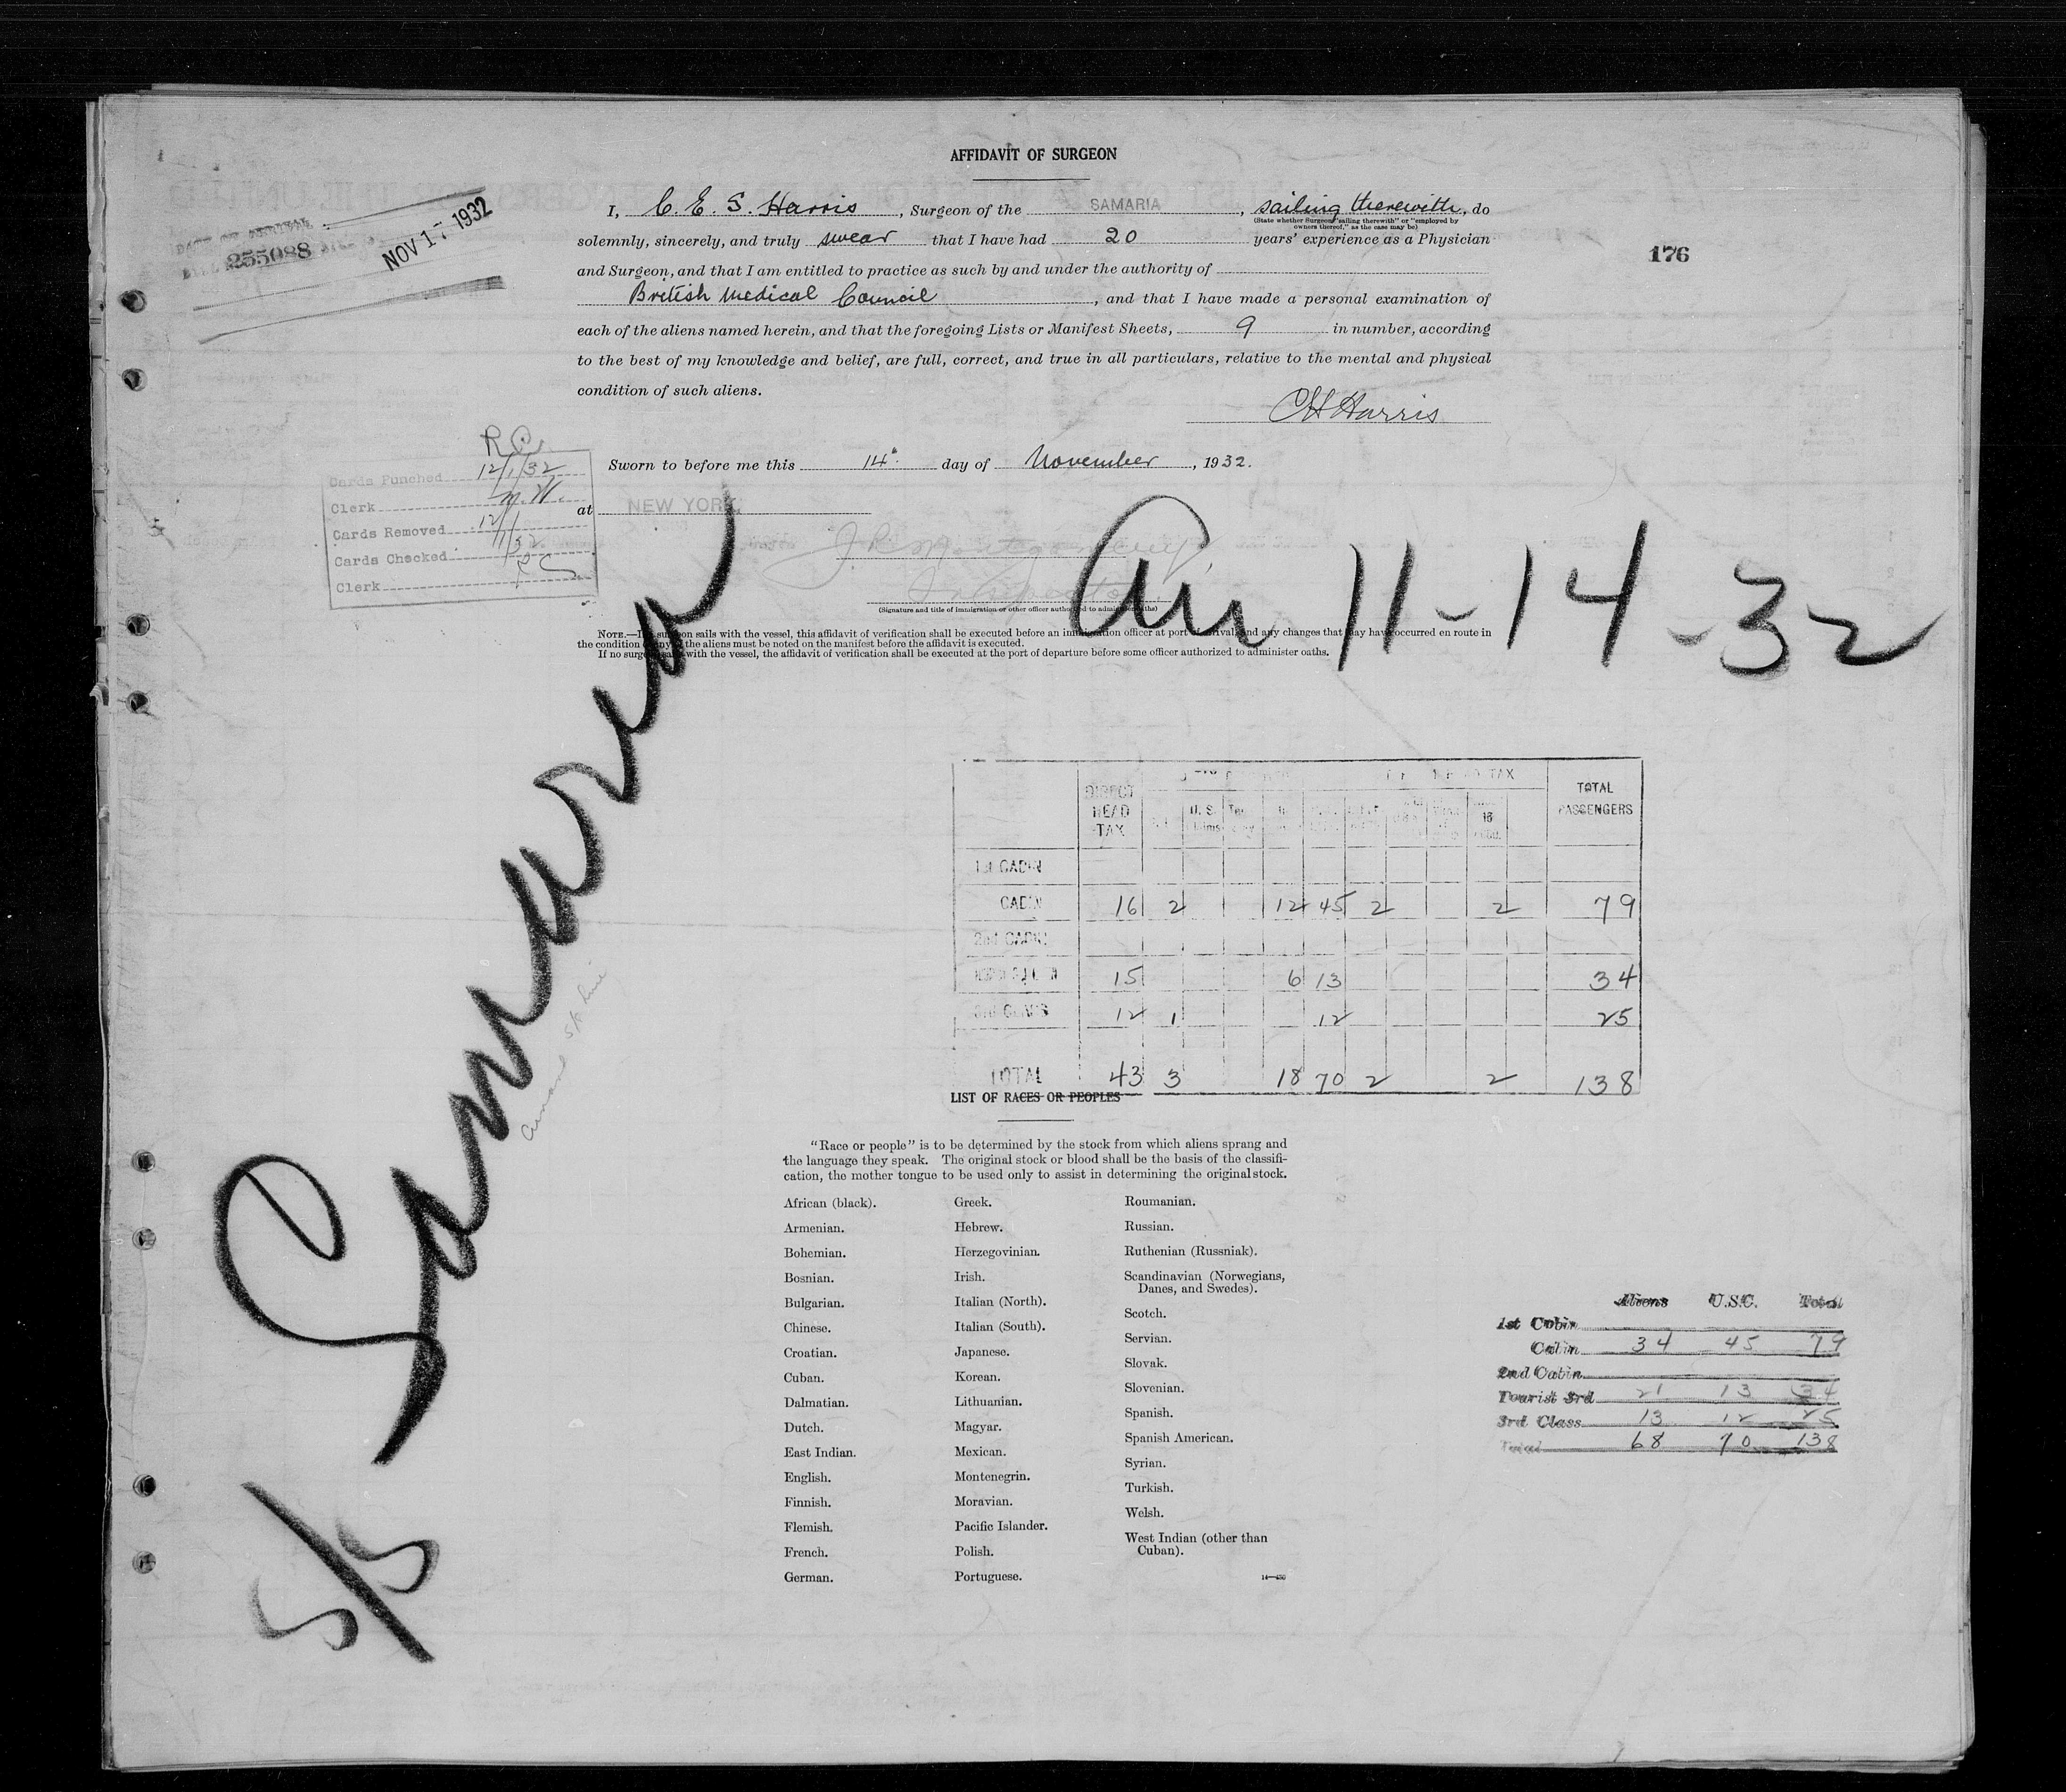 AFFIDAVIT OF SURGEON
I, C. E. S. Harris, Surgeon of the SAMARIA, sailing therewith, do
(State whether Surgeon "sailing therewith" or "employed by
owners thereof," as the case may be)
solemnly, sincerely, and truly swear that I have had 20 years' experience as a Physician
and Surgeon, and that I am entitled to practice as such by and under the authority of
British Medical Council, and that I have made a personal examination of
each of the aliens named herein, and that the foregoing Lists or Manifest Sheets, 9 in number, according
to the best of my knowledge and belief, are full, correct, and true in all particulars, relative to the mental and physical
condition of such aliens.
Harris
255088
NOV 17 1932
176
Sworn to before me this 14 day of November, 1932.
at NEW YORK.
R.C.
Cards Punched 12/1/32
Clerk m.W.
Cards Removed 12/1
Cards Checked 1/32
Clerk RC
(Signature and title of immigration or other officer authorized to administer oaths)
Arr 11-14-32
NOTE.—If a surgeon sails with the vessel, this affidavit of verification shall be executed before an immigration officer at port of arrival, and any changes that may have occurred en route in
the condition of any of the aliens must be noted on the manifest before the affidavit is executed.
If no surgeon sails with the vessel, the affidavit of verification shall be executed at the port of departure before some officer authorized to administer oaths.
S/S Samaria
Cunard S/S Line
DIRECT HEAD TAX
U. S.
16
TOTAL PASSENGERS
1st CABIN
CABIN 16 2 12 45 2 2 79
2nd CABIN
15 6 13 34
3rd CLASS 12 1 12 25
TOTAL 43 3 18 70 2 2 138
LIST OF RACES OR PEOPLES
"Race or people" is to be determined by the stock from which aliens sprang and
the language they speak. The original stock or blood shall be the basis of the classifi-
cation, the mother tongue to be used only to assist in determining the original stock.
African (black).
Armenian.
Bohemian.
Bosnian.
Bulgarian.
Chinese.
Croatian.
Cuban.
Dalmatian.
Dutch.
East Indian.
English.
Finnish.
Flemish.
French.
German.
Greek.
Hebrew.
Herzegovinian.
Irish.
Italian (North).
Italian (South).
Japanese.
Korean.
Lithuanian.
Magyar.
Mexican.
Montenegrin.
Moravian.
Pacific Islander.
Polish.
Portuguese.
Roumanian.
Russian.
Ruthenian (Russniak).
Scandinavian (Norwegians,
Danes, and Swedes).
Scotch.
Servian.
Slovak.
Slovenian.
Spanish.
Spanish American.
Syrian.
Turkish.
Welsh.
West Indian (other than
Cuban).
Aliens U.S.C. Total
1st Cabin
Cabin 34 45 79
2nd Cabin
Tourist 3rd 21 13 34
3rd Class 13 12 25
Total 68 70 138